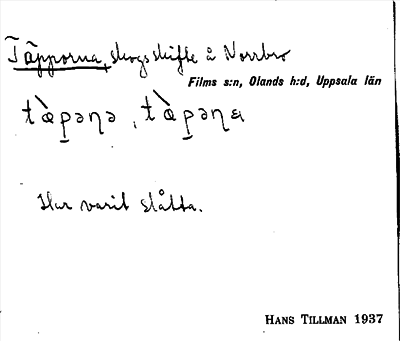 Täpporna, skogsskifte å Norrbro
Films s:n, Olands h:d, Uppsala län
tæ̀p̱əṇə, tæ̀p̱əṇa
Har varit slåtta.
HANS TILLMAN 1937